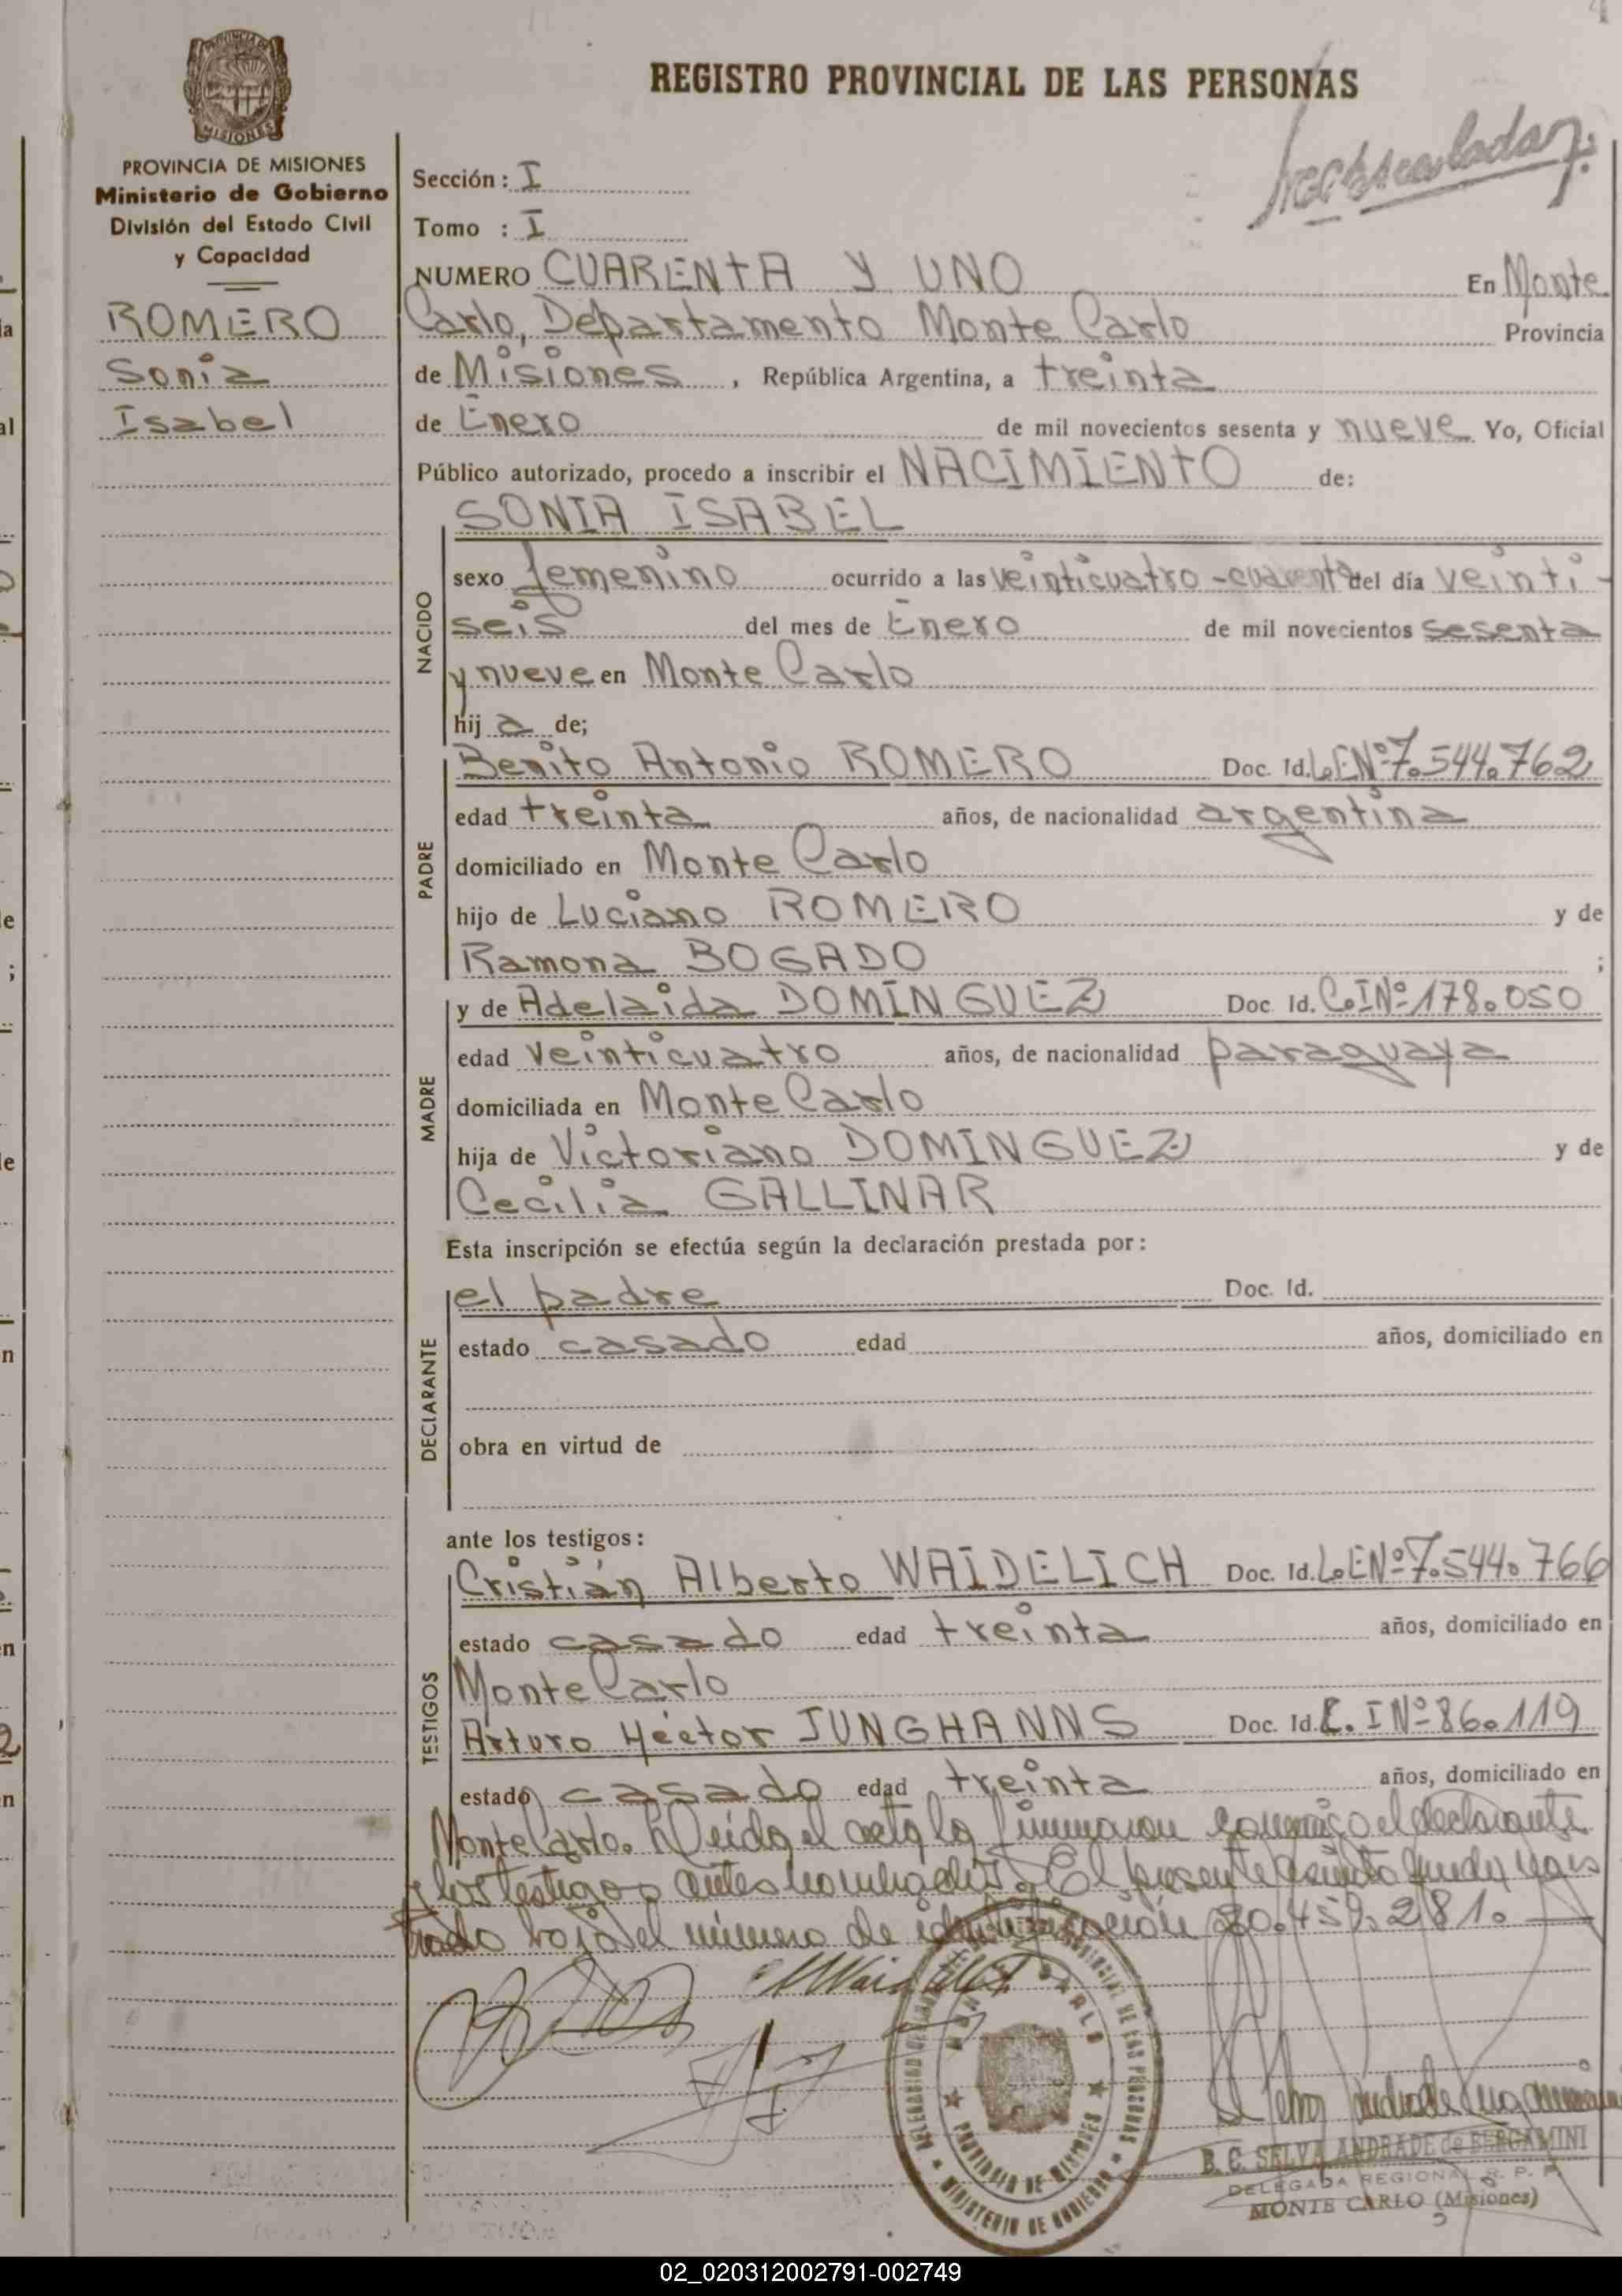 REGISTRO PROVINCIAL DE LAS PERSONAS
MISIONES
PROVINCIA DE MISIONES
Ministerio de Gobierno
División del Estado Civil
y Capacidad
ROMERO
Sonia
Isabel
Sección: I
Tomo : I
NUMERO CUARENTA Y UNO En Monte
Carlo, Departamento Monte Carlo Provincia
de Misiones, República Argentina, a treinta
de Enero de mil novecientos sesenta y nueve Yo, Oficial
Público autorizado, procedo a inscribir el NACIMIENTO de:
NACIDO
SONIA ISABEL
sexo femenino ocurrido a las veinticuatro-cuarenta del día veinti-
seis del mes de Enero de mil novecientos sesenta
y nueve en Monte Carlo
hij a de;
PADRE
Benito Antonio ROMERO Doc. Id. L.E Nº 7.544.762
edad treinta años, de nacionalidad argentina
domiciliado en Monte Carlo
hijo de Luciano ROMERO y de
Ramona BOGADO ;
MADRE
y de Adelaida DOMINGUEZ Doc. Id. C.I Nº 178.050
edad veinticuatro años, de nacionalidad paraguaya
domiciliada en Monte Carlo
hija de Victoriano DOMINGUEZ y de
Cecilia GALLINAR
Esta inscripción se efectúa según la declaración prestada por:
DECLARANTE
el padre Doc. Id.
estado casado edad años, domiciliado en
obra en virtud de
ante los testigos:
TESTIGOS
Cristián Alberto WAIDELICH Doc. Id. L.E Nº 7.544.766
estado casado edad treinta años, domiciliado en
Monte Carlo
Arturo Héctor JUNGHANNS Doc. Id. C. I Nº 86.119
estado casado edad treinta años, domiciliado en
Monte Carlo. Leída el acta la firmaron conmigo el declarante
y los testigos antes nombrados. El presente asiento queda regis
trado bajo el número de identificación 20.459.281.
PROVINCIA DE MISIONES
MINISTERIO DE GOBIERNO
B. C. SELVA ANDRADE de BERGAMINI
DELEGADA REGIONAL R. P. P.
MONTE CARLO (Misiones)
02_020312002791-002749